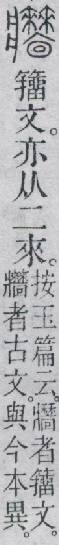 籒文。亦从二來。
按玉篇云。牆者籒文。
牆者古文。與今本異。